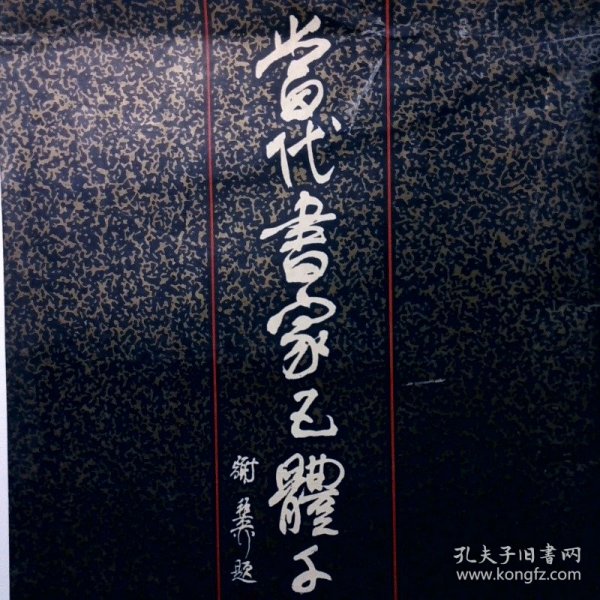 當代書家五體千
謝稚柳題
孔夫子旧書网
www.kongfz.com